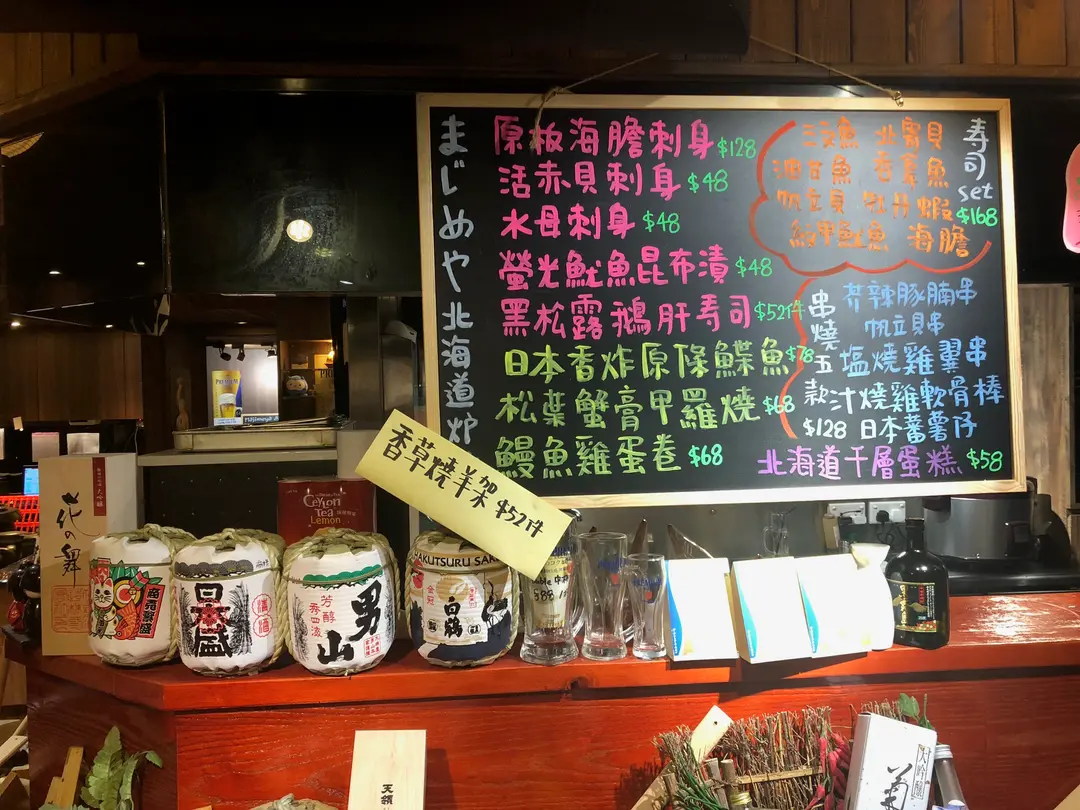 まじめや北海道炉
原板海膽刺身 $128
活赤貝刺身 $48
水母刺身 $48
螢光魷魚昆布漬 $48
黑松露鵝肝壽司 $52件
日本香炸原條鰈魚 $78
松葉蟹膏甲羅燒 $68
鰻魚雞蛋卷 $68
壽司set $168
三文魚 北寄貝
油甘魚 吞拿魚
帆立貝 牡丹蝦
紋甲魷魚 海膽
串燒五款 $128
芥辣豚腩串
帆立貝串
塩燒雞翼串
汁燒雞軟骨棒
日本蕃薯仔
北海道千層蛋糕 $58
香草燒羊架 $52件
花の舞
Ceylon
Tea
Lemon
商売繁盛
日本盛
清酒
芳醇
秀四海
男山
HAKUTSURU SAKE
白鶴
PREMIUM
天領
大吟醸